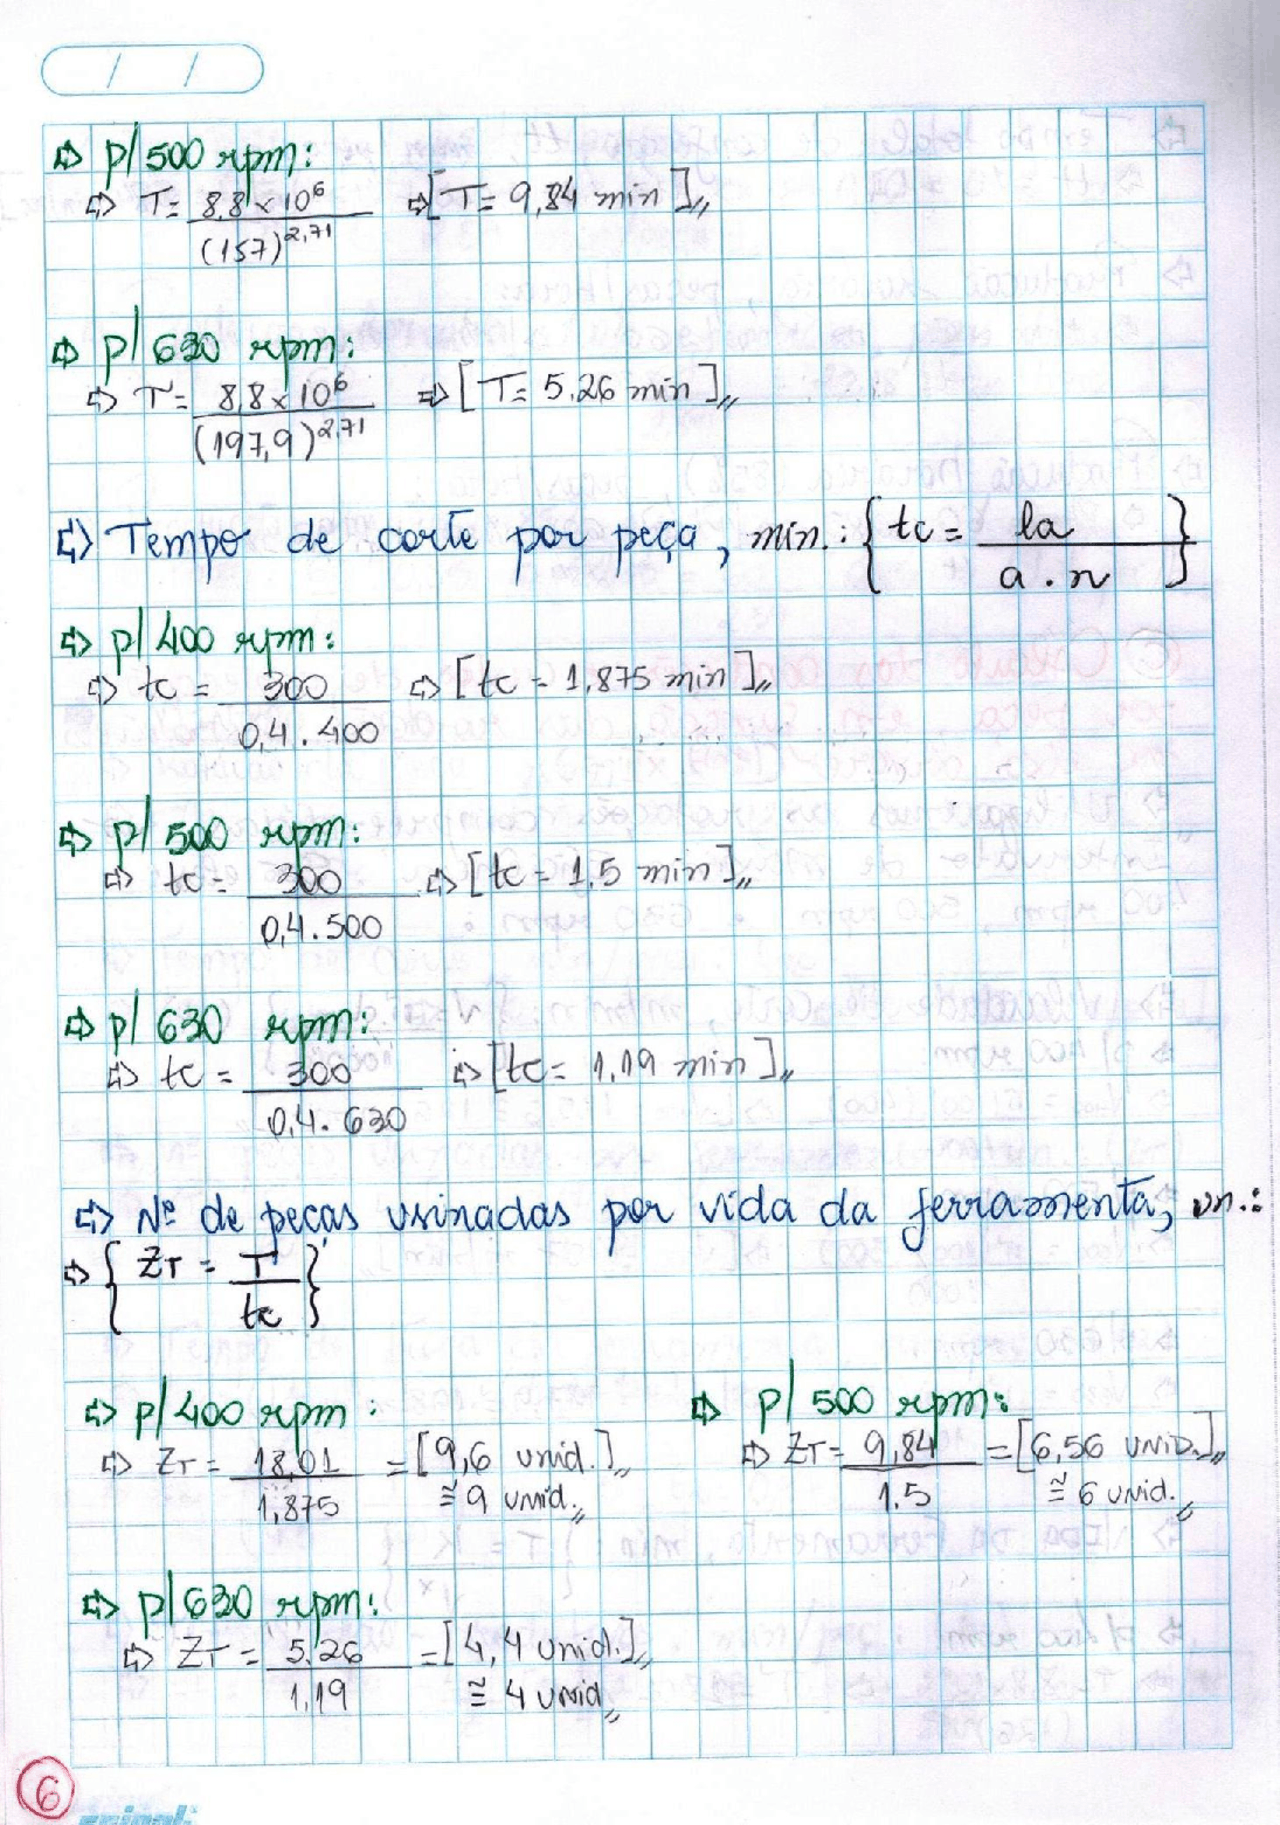 / /
⇨ p/ 500 rpm:
⇨ T = 8,8 × 10⁶ / (157)^2,71 ⇨ [T = 9,84 min],,
⇨ p/ 630 rpm:
⇨ T = 8,8 × 10⁶ / (197,9)^2,71 ⇨ [T = 5,26 min],,
⇨ Tempo de corte por peça, min.: { tc = la / a . n }
⇨ p/ 400 rpm:
⇨ tc = 300 / 0,4 . 400 ⇨ [tc = 1,875 min],,
⇨ p/ 500 rpm:
⇨ tc = 300 / 0,4 . 500 ⇨ [tc = 1,5 min],,
⇨ p/ 630 rpm:
⇨ tc = 300 / 0,4 . 630 ⇨ [tc = 1,19 min],,
⇨ Nº de peças usinadas por vida da ferramenta, un.:
⇨ { ZT = T / tc }
⇨ p/ 400 rpm:
⇨ ZT = 18,01 / 1,875 = [9,6 unid.],,
≅ 9 unid.,,
⇨ p/ 500 rpm:
⇨ ZT = 9,84 / 1,5 = [6,56 UNID.],,
≅ 6 unid.,,
⇨ p/ 630 rpm:
⇨ ZT = 5,26 / 1,19 = [4,4 unid.],,
≅ 4 unid,,
6